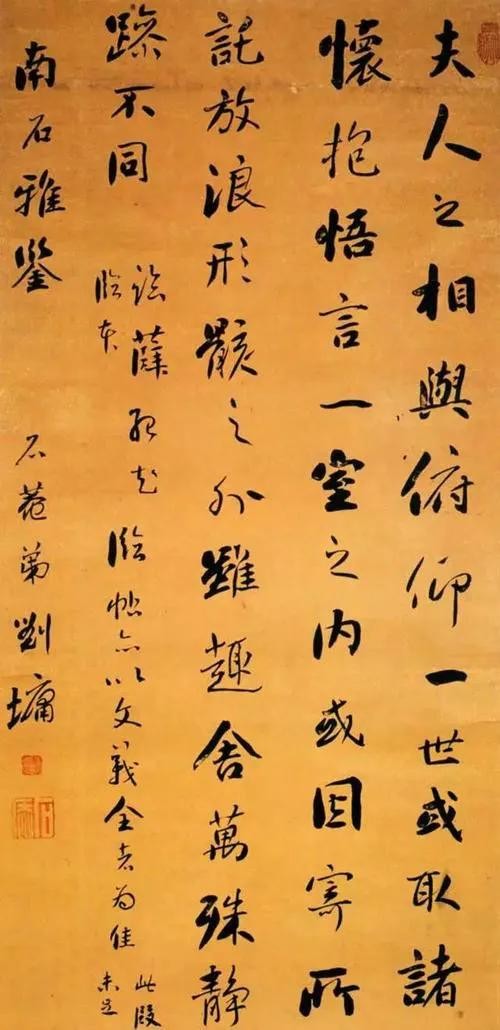 夫人之相與俯仰一世或取諸
懷抱悟言一室之内或因寄所
託放浪形骸之外雖趣舍萬殊靜
躁不同
臨帖亦以文義全者為佳 此段
南石雅鑒
石菴弟劉墉